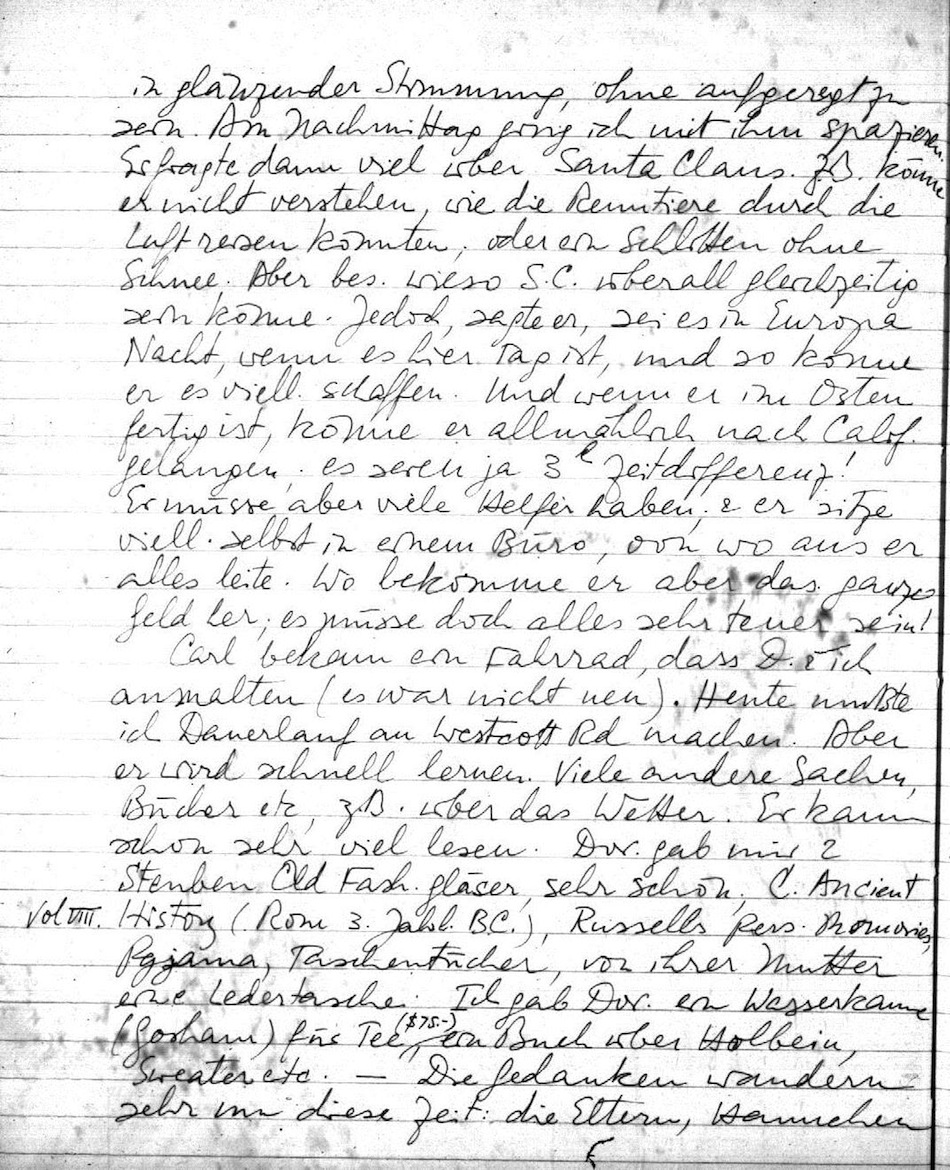 in glänzender Stimmung, ohne aufgeregt zu
sein. Am Nachmittag ging ich mit ihm spazieren.
Er fragte dann viel über Santa Claus. z.B. könne
er nicht verstehen, wie die Renntiere durch die
Luft reisen könnten, oder ein Schlitten ohne
Schnee. Aber bes. wieso S.C. überall gleichzeitig
sein könne. Jedoch, sagte er, sei es in Europa
Nacht, wenn es hier Tag ist, und so könne
er es viell. schaffen. Und wenn er im Osten
fertig ist, könne er allmählich nach Calif.
gelangen, es seien ja 3 Zeitdifferenz!
Er müsse aber viele Helfer haben, & er sitze
viell. selbst in einem Büro, von wo aus er
alles leite. Wo bekomme er aber das ganze
Geld her, es müsse doch alles sehr teuer sein!
Carl bekam ein Fahrrad, dass D. & ich
anmalten (es war nicht neu). Heute mußte
ich Dauerlauf an Westcott Rd machen. Aber
er wird schnell lernen. Viele andere Sachen,
Bücher etc, z.B. über das Wetter. Er kann
schon sehr viel lesen. Dor. gab mir 2
Steuben Old Fash. gläser, sehr schön, C. Ancient
Vol VIII. History (Rom 3. Jahh. B.C.), Russells Pers. Memories,
Pyjama, Taschentücher, von ihrer Mutter
eine Ledertasche. Ich gab Dor. ein Wasserkanne
(Gorham) für Tee ($75.-), ein Buch über Holbein,
Sweater etc. — Die Gedanken wandern
sehr um diese Zeit: die Eltern, Hannchen